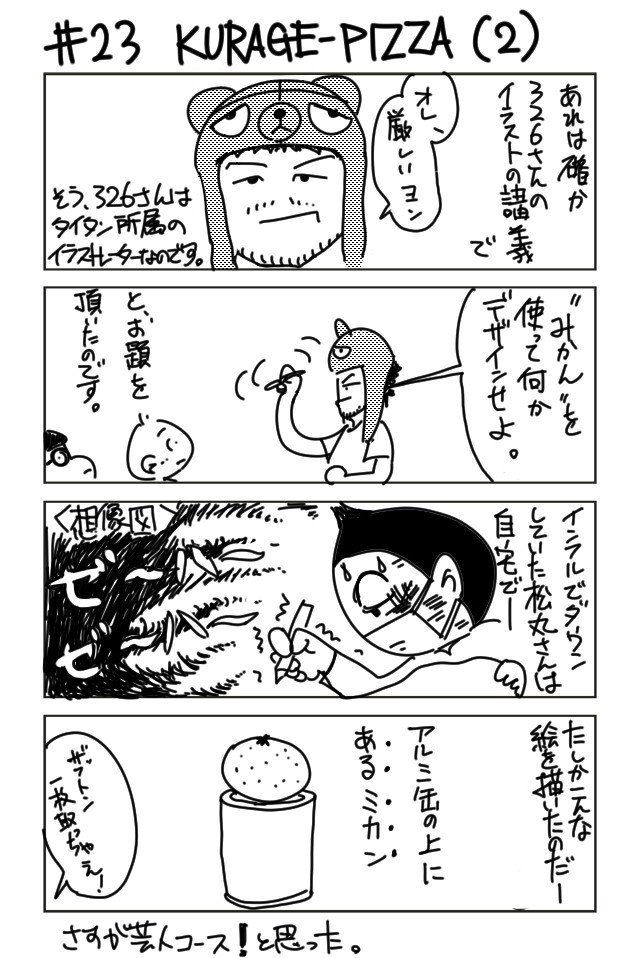 #23 KURAGE-PIZZA (2)
あれは確か
326さんの
イラストの講義
で
オレ、
厳しいヨン
そう、326さんは
タイタン所属の
イラストレーターなのです。
"みかん"を
使って何か
デザインせよ。
と、お題を
頂いたのです。
インフルでダウン
していた松丸さんは
自宅でー
<想像図>
ゼーハー
ゼーハー
たしかこんな
絵を描いたのだー
アルミ缶の上に
あるミカン
ザブトン
一枚取っちゃえ!
さすが芸人コース!と思った。